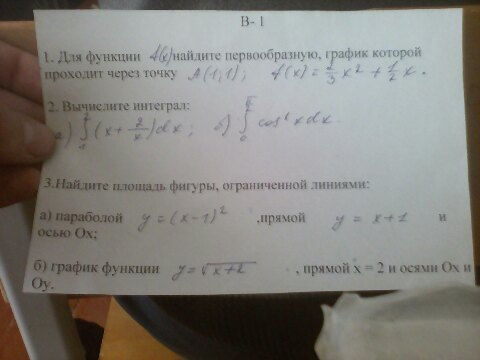 В- 1
1. Для функции f(x) найдите первообразную, график которой
проходит через точку A(1;1); f(x) = 2/3 x² + 1/2 x.
2. Вычислите интеграл:
а) ∫ (x + 2/x) dx; б) ∫ cos² x dx.
3.Найдите площадь фигуры, ограниченной линиями:
а) параболой y = (x-1)² ,прямой y = x+1 и
осью Ох;
б) график функции y = √x+2 , прямой х = 2 и осями Ох и
Оу.